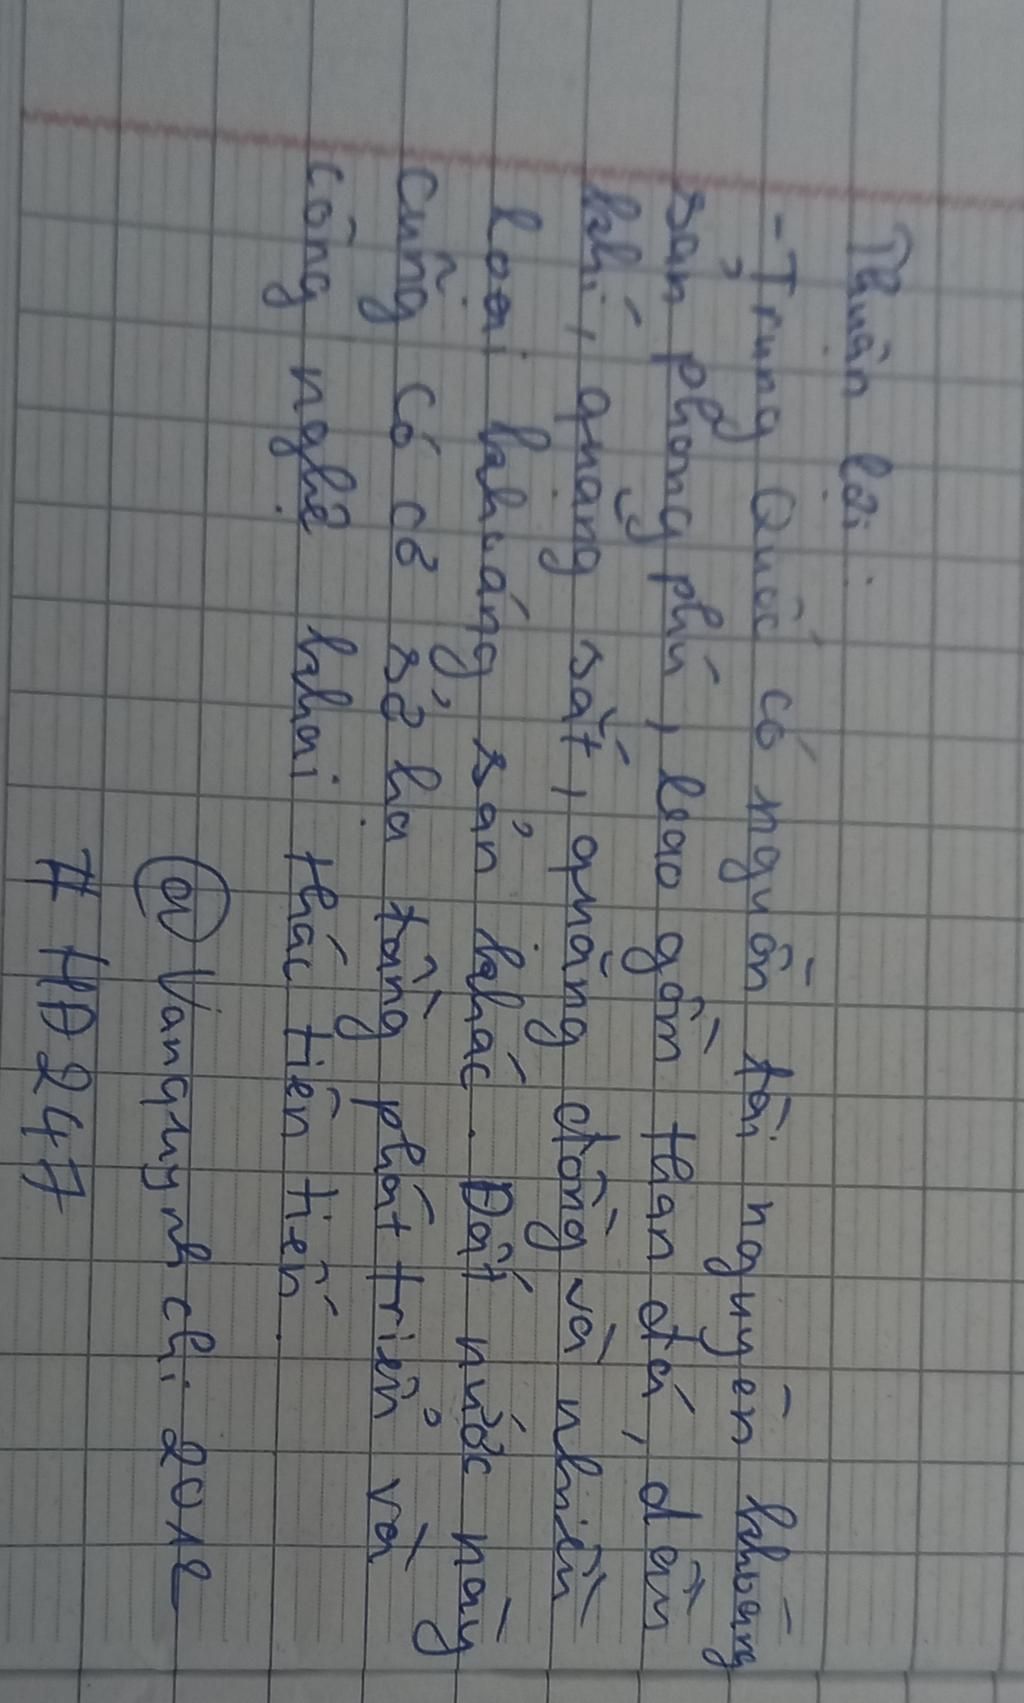 Thuận lợi:
- Trung Quốc có nguồn tài nguyên khoáng
sản phong phú, bao gồm than đá, dầu
khí, quặng sắt, quặng đồng và nhiều
loại khoáng sản khác. Đất nước này
cũng có cơ sở hạ tầng phát triển và
công nghệ khai thác tiên tiến.
@ Vanquynh chi 2012
# HĐ247